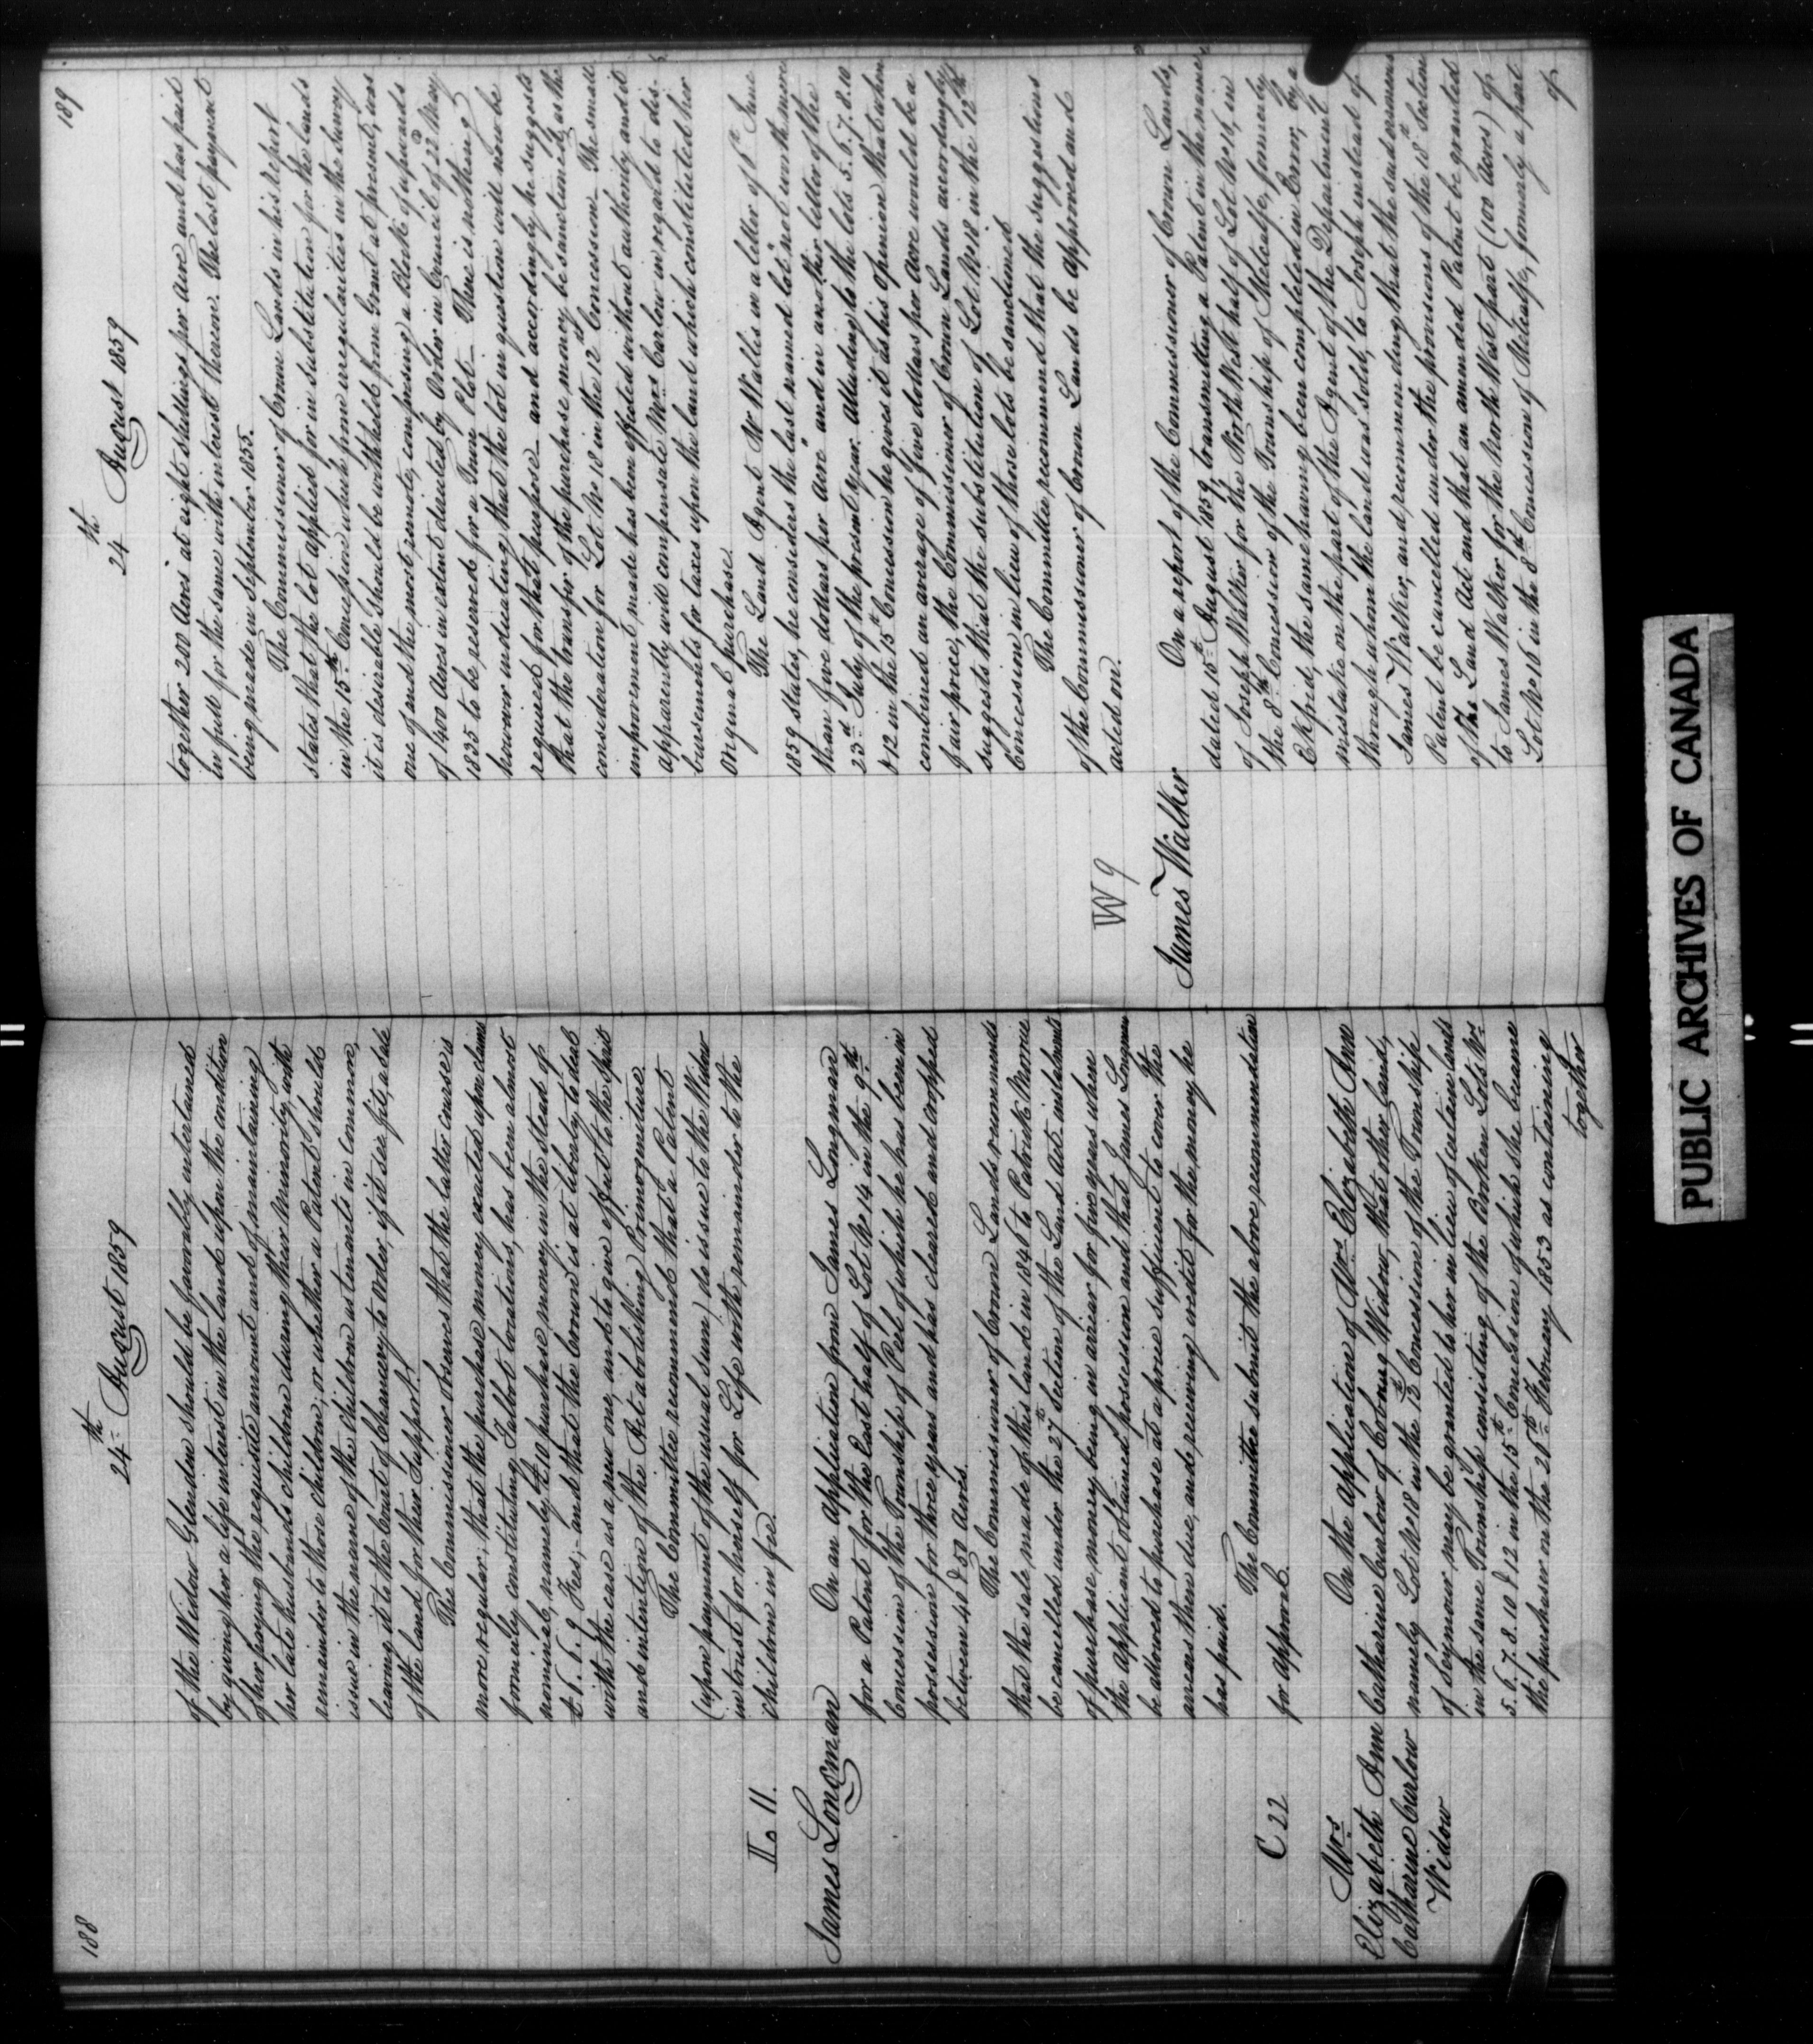 188
24th August 1859
of the Widow Glendon should be favorably entertained
by giving her a life interest in the land upon the condition
of her paying the requisite amount and of maintaining
her late husband's children during their minority, with
remainder to those children; or whether a Patent should
issue in the name of the children as tenants in common,
leaving it to the Court of Chancery to order, if it see fit, a sale
of the land for their support.
The Commissioner observes that the latter course is
more regular; that the purchase money exacted upon claims
formerly constituting Talbot locations, has been almost
nominal, namely £10 purchase money, in the stead of
£6. 6. 9 Fees;— and that the Crown is at liberty to deal
with the case as a new one, and to give effect to the Spirit
and intention of the Act abolishing Primogeniture.
The Committee recommend that a Patent
(upon payment of the usual sum) do issue to the Widow
in trust for herself for Life with remainder to the
children in fee.
L 11.
James Longman
On an application from James Longman
for a Patent for the East half of Lot No 14 in the 9th
Concession of the Township of Peel of which he has been in
possession for three years and has cleared and cropped
between 40 & 50 acres.
The Commissioner of Crown Lands recommends
that the sale made of this land in 1846 to Patrick Morrice
be cancelled under the 27th Section of the Land Act, instalments
of purchase money being in arrear for five years when
the applicant obtained possession and that James Longman
be allowed to purchase at a price sufficient to cover the
arrears then due, and receiving credit for the money he
has paid.
The Committee submit the above recommendation
for approval.
C 22
Mrs
Elizabeth Ann
Catharine Carlow
Widow
On the application of Mrs Elizabeth Ann
Catharine Carlow of Cobourg Widow, that other land,
namely Lot No 18 in the 12th Concession of the Township
of Seymour may be granted to her in lieu of certain lands
in the same Township consisting of the Broken Lots Nos
5. 6. 7. 8. 10 & 12 in the 15th Concession of which she became
the purchaser on the 26th February 1853 as containing
together
189
24th August 1859
together 200 Acres at eight shillings per acre and has paid
in full for the same with interest thereon. The last payment
being made in September 1855.
The Commissioner of Crown Lands in his report
states that the lot applied for in substitution for the lands
in the 15th Concession which from irregularities in the survey
it is desirable should be withheld from Grant at present, was
one of and the most remote, comprising a Block of upwards
of 1400 Acres in extent directed by Order in Council of 22d May
1835 to be reserved for a Town Plot— There is nothing
however indicating that the lot in question will now be
required for that purpose— and accordingly he suggests
that the transfer of the purchase money be sanctioned, as the
consideration for Lot No 18 in the 12th Concession— The small
improvement made has been effected without authority and it
apparently will compensate Mrs Carlow in regard to dis-
bursements for taxes upon the land which constituted her
original purchase.
The Land Agent Mr Wallis in a letter of 8th June
1859 states, he considers the last named lot "not worth more
than five dollars per acre" and in another letter of the
23rd July of the present year. Alluding to the lots 5. 6. 7. 8. 10
& 12 in the 15th Concession he gives it as his opinion that when
combined an average of five dollars per Acre would be a
fair price, the Commissioner of Crown Lands accordingly
suggests that the substitution of Lot No 18 in the 12th
Concession in lieu of those lots be sanctioned
The Committee recommend that the suggestions
of the Commissioner of Crown Lands be approved and
acted on.
W 9
James Walker
On a report of the Commissioner of Crown Lands,
dated 15th August 1859, transmitting a Patent in the name
of Joseph Walker for the North West half of Lot No 16, in
the 8th Concession of the Township of Metcalfe, formerly
Ekfrid, the same having been completed in Error, by a
mistake on the part of the Agent of the Department
through whom the land was sold, to Joseph instead of
James Walker, and recommending that the said erroneous
Patent be cancelled under the provisions of the 18th Section
of the Land Act and that an amended Patent be granted
to James Walker for the North West part (100 Acres) of
Lot No 16 in the 8th Concession of Metcalfe, formerly a part
of
PUBLIC ARCHIVES OF CANADA